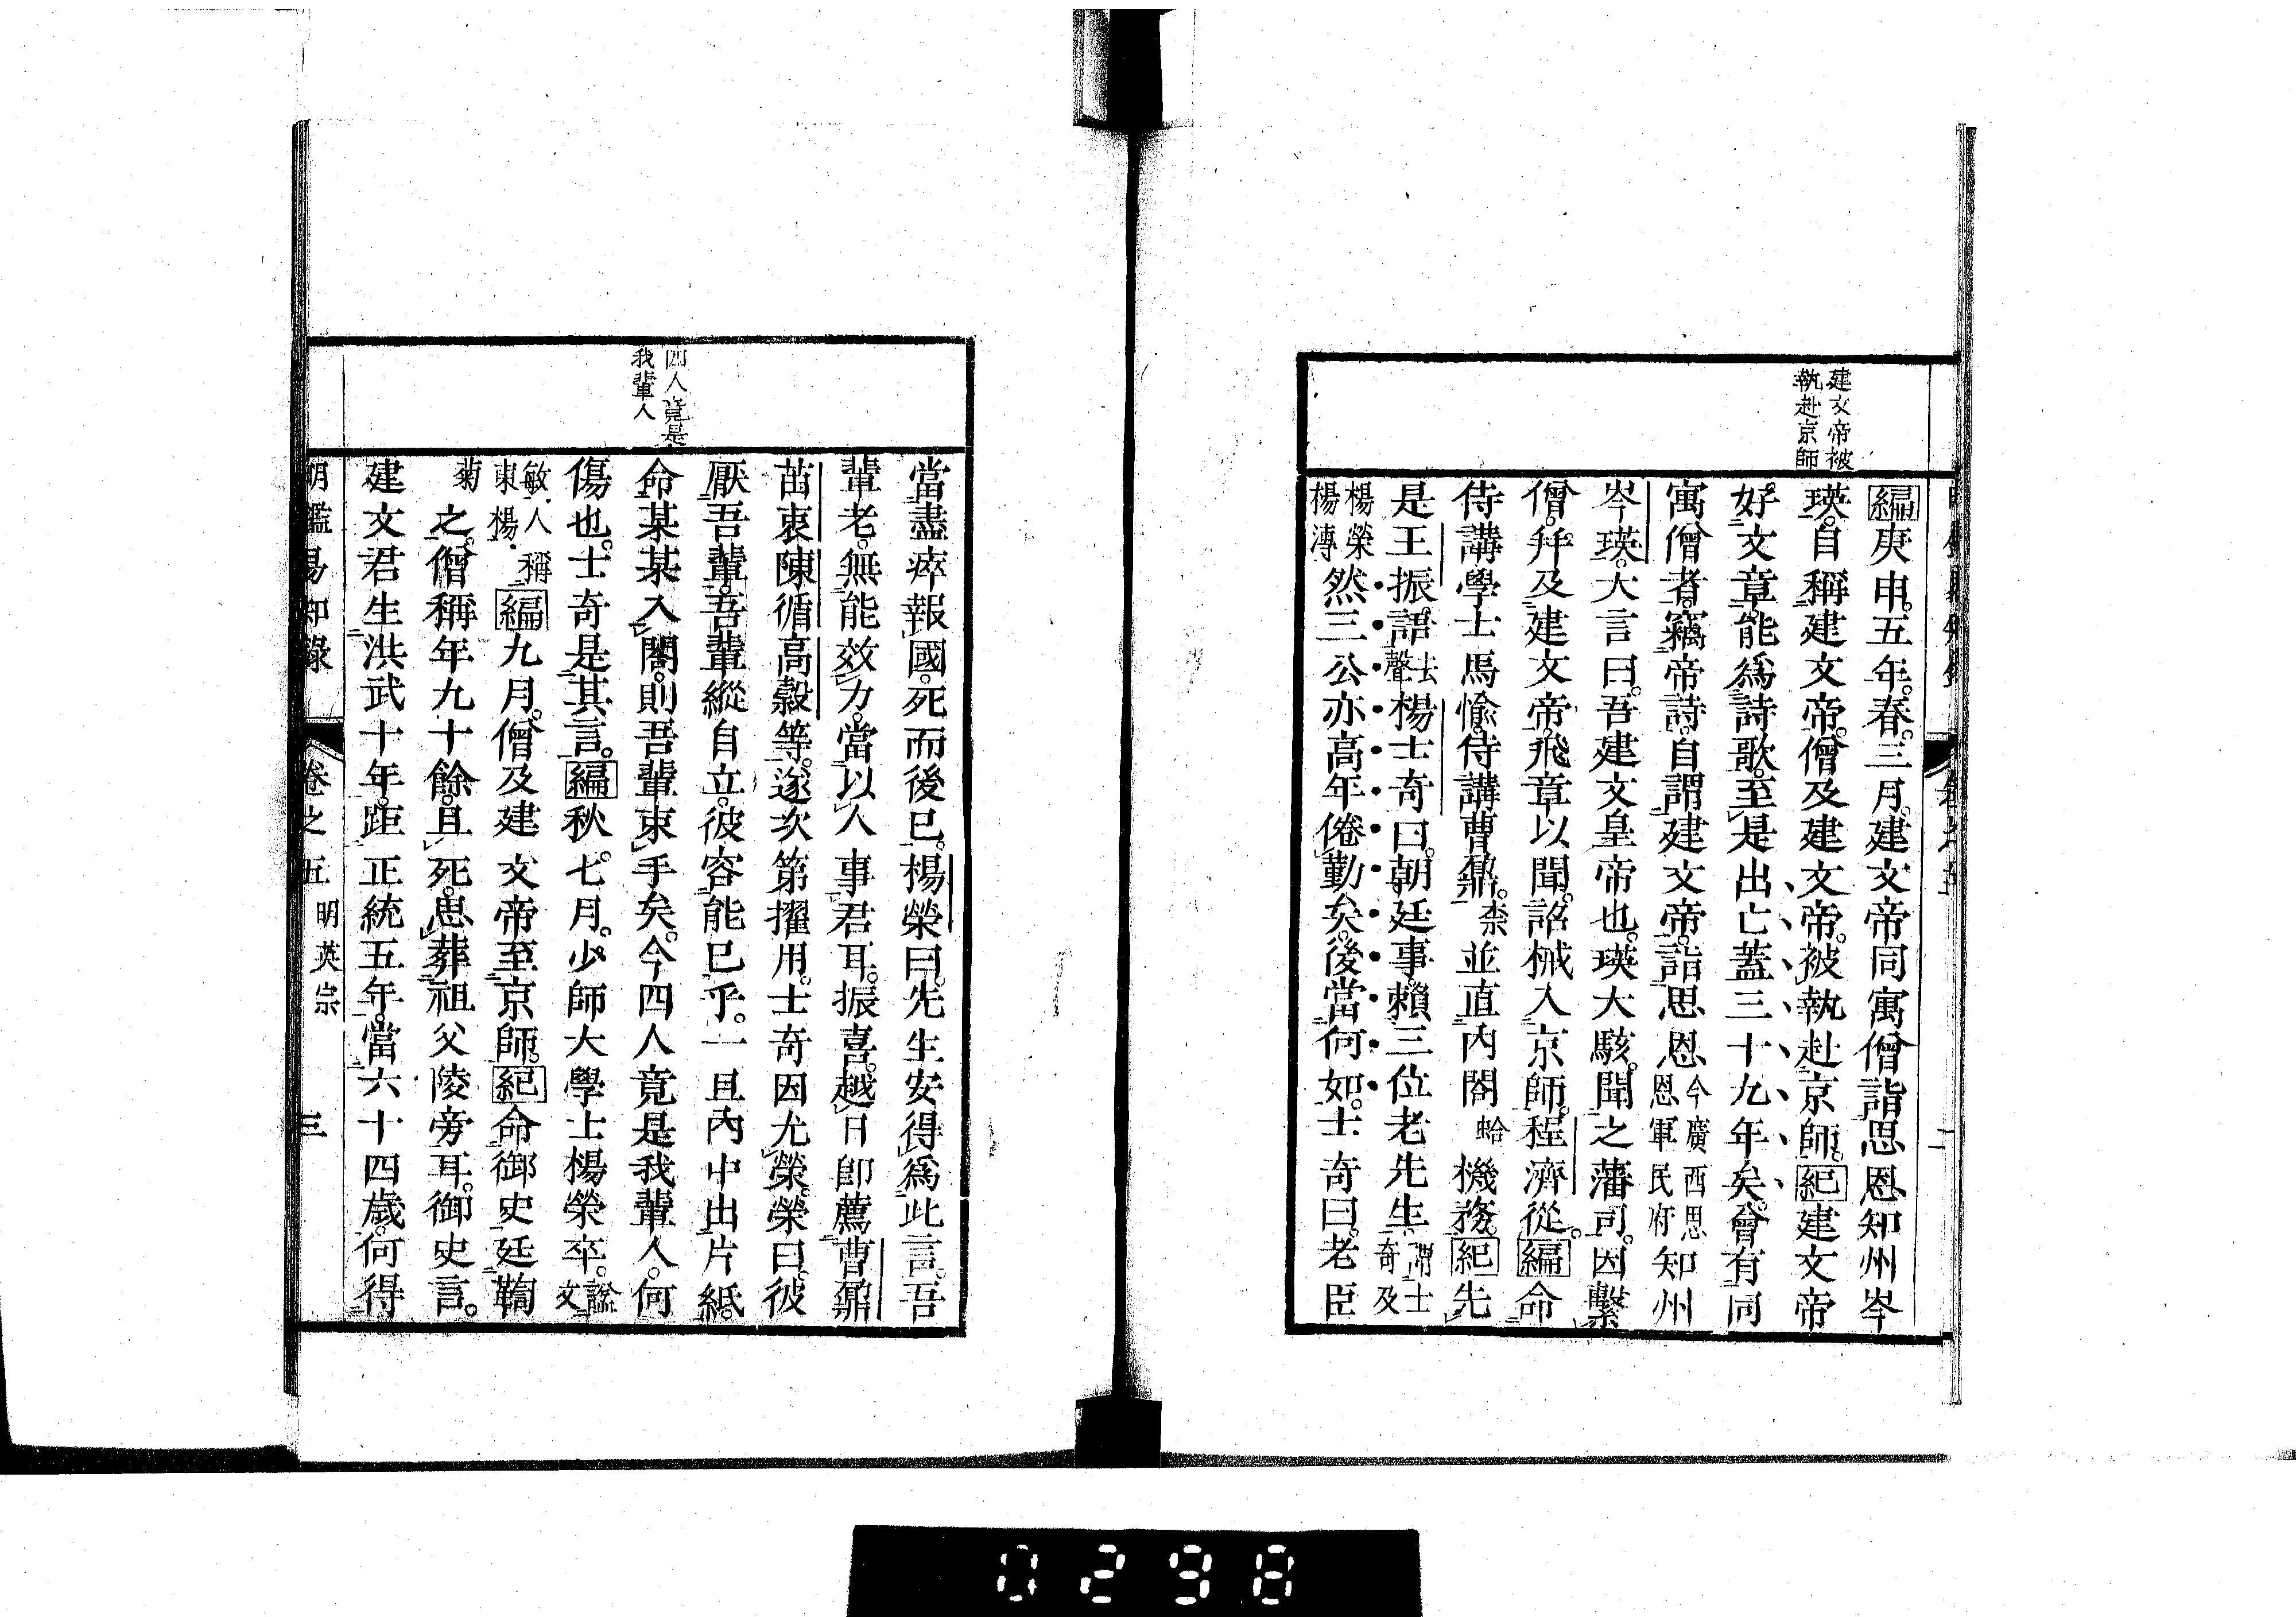 建文帝被
執赴京師
編庚申。五年。春。三月。建文帝同寓僧詣思恩知州岑
瑛。自稱建文帝。僧及建文帝。被執赴京師。紀建文帝
好文章。能爲詩歌。至是出亡蓋三十九年矣。會有同
寓僧者。竊帝詩。自謂建文帝。詣思恩今廣西思恩軍民府知州
岑瑛。大言曰。吾建文皇帝也。瑛大駭。聞之藩司。因繫
僧。幷及建文帝。飛章以聞。詔械入京師。程濟從。編命
侍講學士馬愉。侍講曹鼐。柰並直內閣蛤機務。紀先
是王振。語去聲楊士奇曰。朝廷事。賴三位老先生。謂士奇及
楊榮楊溥然三公亦高年倦勤矣。後當何如。士奇曰。老臣
四人竟是
我輩人
當盡瘁報國。死而後已。楊榮曰。先生安得爲此言。吾
輩老。無能效力。當以人事君耳。振喜。越日卽薦曹鼐
苗衷陳循高穀等。遂次第擢用。士奇因尤榮。榮曰。彼
厭吾輩。吾輩縱自立。彼容能已乎。一旦內中出片紙。
命某某入閣。則吾輩束手矣。今四人竟是我輩人。何
傷也。士奇是其言。編秋。七月。少師大學士楊榮卒。諡文
敏。人稱東楊。編九月。僧及建文帝至京師。紀命御史廷鞫
菊之。僧稱年九十餘。且死。思葬祖父陵旁耳。御史言。
建文君生洪武十年。距正統五年。當六十四歲。何得
明鑑易知錄 卷之五 明英宗 三